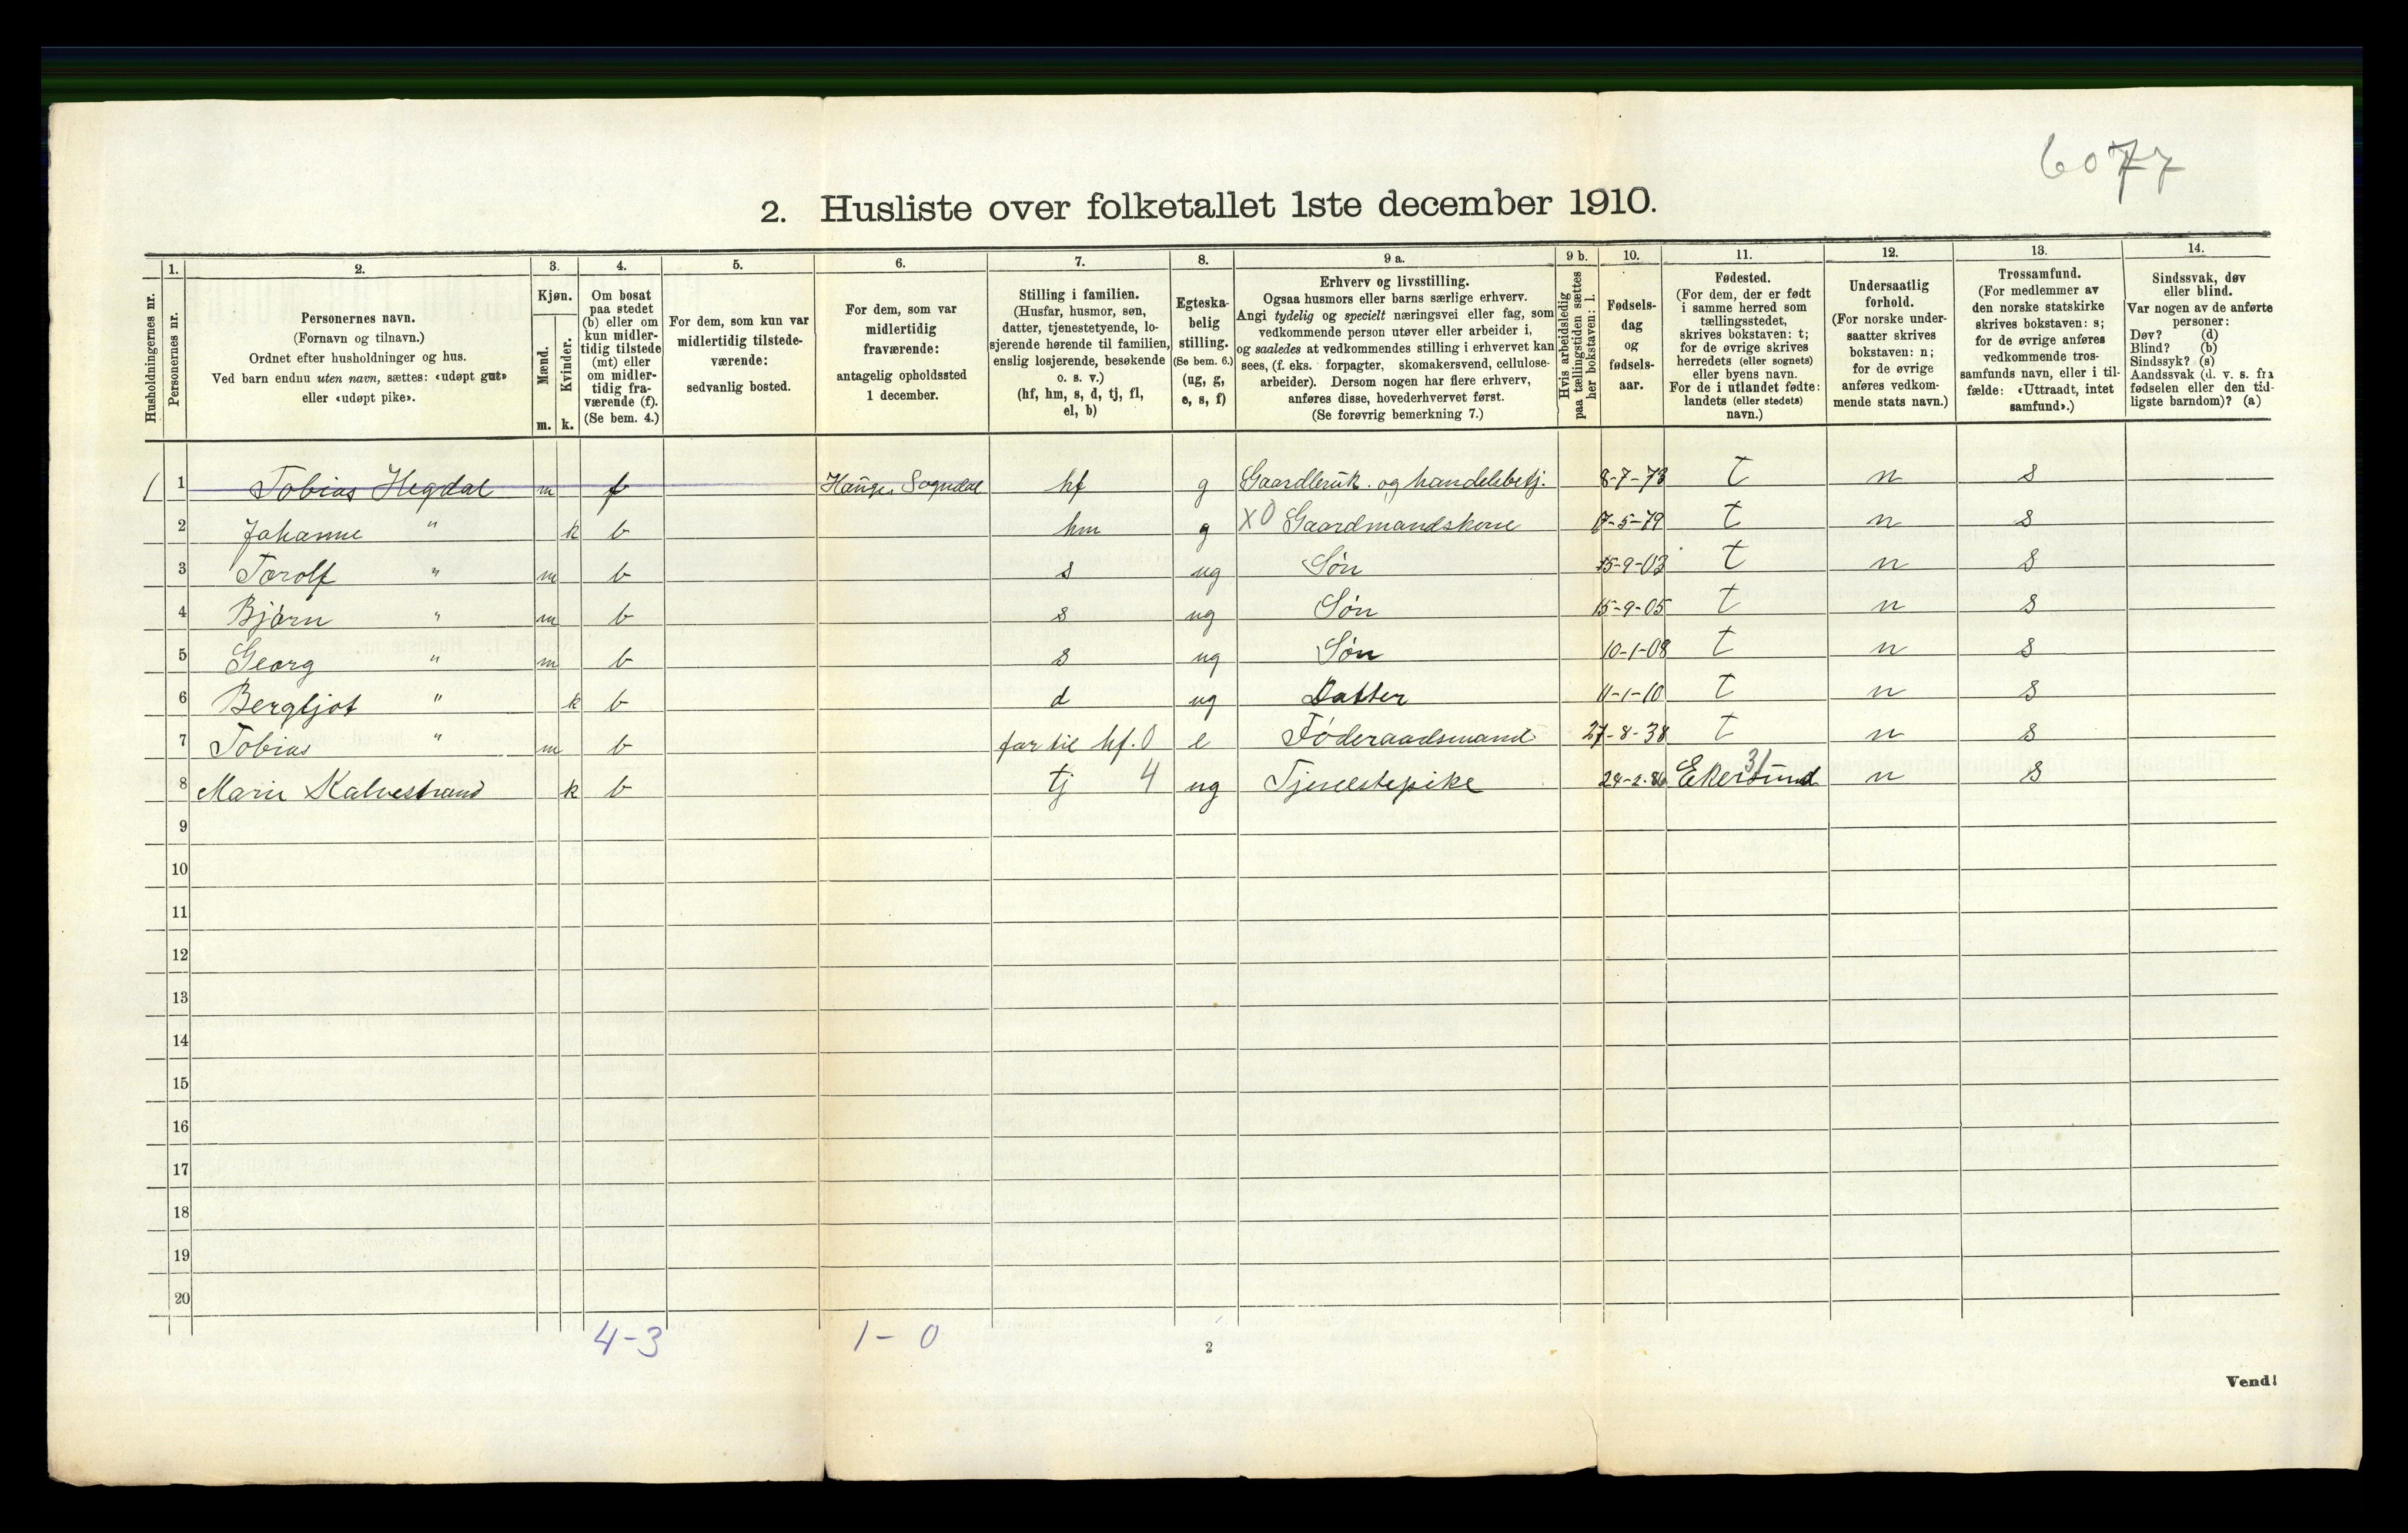 6077
2. Husliste over folketallet 1ste december 1910.
Husholdningernes nr.
1.
Personernes nr.
2.
Personernes navn.
(Fornavn og tilnavn.)
Ordnet efter husholdninger og hus.
Ved barn endnu uten navn, sættes: «udøpt gut»
eller «udøpt pike».
3.
Kjøn.
Mænd.
Kvinder.
m. k.
4.
Om bosat
paa stedet
(b) eller om
kun midler-
tidig tilstede
(mt) eller
om midler-
tidig fra-
værende (f).
(Se bem. 4.)
5.
For dem, som kun var
midlertidig tilstede-
værende:
sedvanlig bosted.
6.
For dem, som var
midlertidig
fraværende:
antagelig opholdssted
1 december.
7.
Stilling i familien.
(Husfar, husmor, søn,
datter, tjenestetyende, lo-
sjerende hørende til familien,
enslig losjerende, besøkende
o. s. v.)
(hf, hm, s, d, tj, fl,
el, b)
8.
Egteska-
belig
stilling.
(Se bem. 6.)
(ug, g,
e, s, f)
9 a.
Erhverv og livsstilling.
Ogsaa husmors eller barns særlige erhverv.
Angi tydelig og specielt næringsvei eller fag, som
vedkommende person utøver eller arbeider i,
og saaledes at vedkommendes stilling i erhvervet kan
sees, (f. eks. forpagter, skomakersvend, cellulose-
arbeider). Dersom nogen har flere erhverv,
anføres disse, hovederhvervet først.
(Se forøvrig bemerkning 7.)
9 b.
Hvis arbeidsledig
paa tællingstiden sættes
her bokstaven: l.
10.
Fødsels-
dag
og
fødsels-
aar.
11.
Fødested.
(For dem, der er født
i samme herred som
tællingsstedet,
skrives bokstaven: t;
for de øvrige skrives
herredets (eller sognets)
eller byens navn.
For de i utlandet fødte:
landets (eller stedets)
navn.)
12.
Undersaatlig
forhold.
(For norske under-
saatter skrives
bokstaven: n;
for de øvrige
anføres vedkom-
mende stats navn.)
13.
Trossamfund.
(For medlemmer av
den norske statskirke
skrives bokstaven: s;
for de øvrige anføres
vedkommende tros-
samfunds navn, eller i til-
fælde: «Uttraadt, intet
samfund».)
14.
Sindssvak, døv
eller blind.
Var nogen av de anførte
personer:
Døv? (d)
Blind? (b)
Sindssyk? (s)
Aandssvak (d. v. s. fra
fødselen eller den tid-
ligste barndom)? (a)
1 1 Tobias Hegdal m f Hauge, Sogndal hf g Gaardbruk. og handelsbetj. 8-7-73 t n s
2 Johanne " k b hm g X0 Gaardmandskone 17-5-79 t n s
3 Torolf " m b s ug Søn 15-9-03 t n s
4 Bjørn " m b s ug Søn 15-9-05 t n s
5 Georg " m b s ug Søn 10-1-08 t n s
6 Bergljot " k b d ug Datter 11-1-10 t n s
7 Tobias " m b far til hf. 0 e Föderaadsmand 27-8-38 t n s
8 Marie Kalvestrand k b tj 4 ug Tjenestepike 24-2-86 Ekersund 31 n s
9
10
11
12
13
14
15
16
17
18
19
20
4-3 1-0
2
Vend!